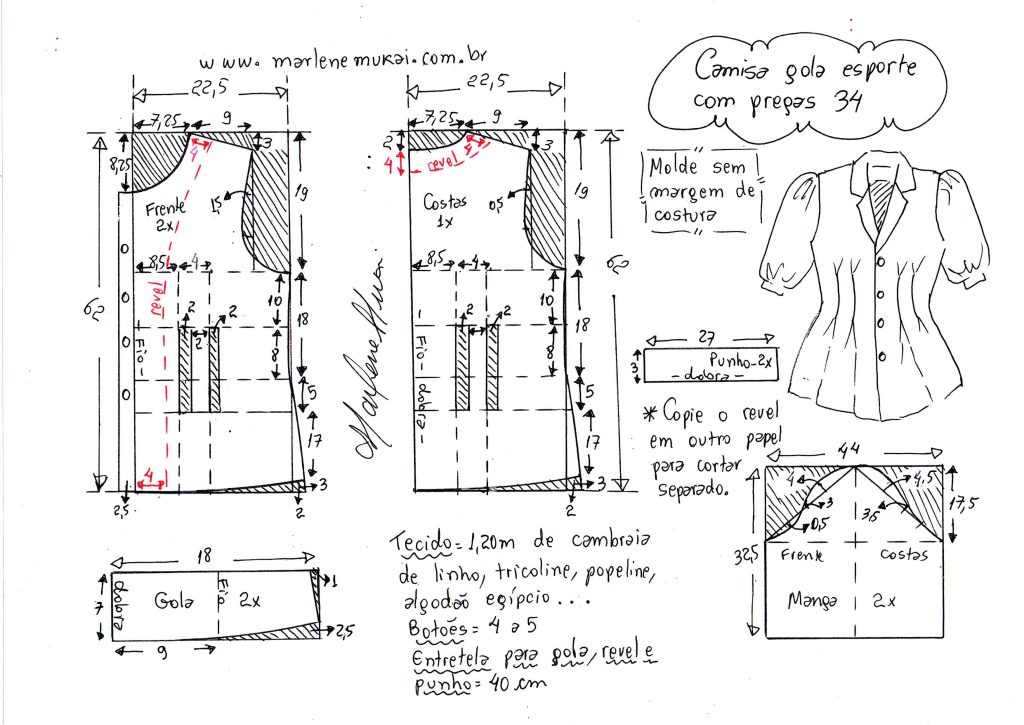 www.marlenemukai.com.br
Camisa gola esporte
com pregas 34
22,5
7,25
9
8,25
4
3
Frente
2x
1,5
19
8,5
4
revel
62
10
18
2
2
2
8
Fio
5
17
4
3
2,5
2
22,5
7,25
9
2
4
revel
5
3
Costas
1x
0,5
19
8,5
4
62
10
18
2
2
2
8
Fio
dobra
5
17
3
2
Marlene Mukai
Molde sem
margem de
costura
27
3
Punho-2x
-dobra-
* Copie o revel
em outro papel
para cortar
separado.
44
4
4,5
3
3,5
0,5
17,5
32,5
Frente
Costas
Manga
2x
18
7
dobra
Gola
Fio
2x
1
2,5
9
Tecido=1,20m de cambraia
de linho, tricoline, popeline,
algodão egípcio...
Botões= 4 a 5
Entretela para gola, revel e
punho= 40 cm